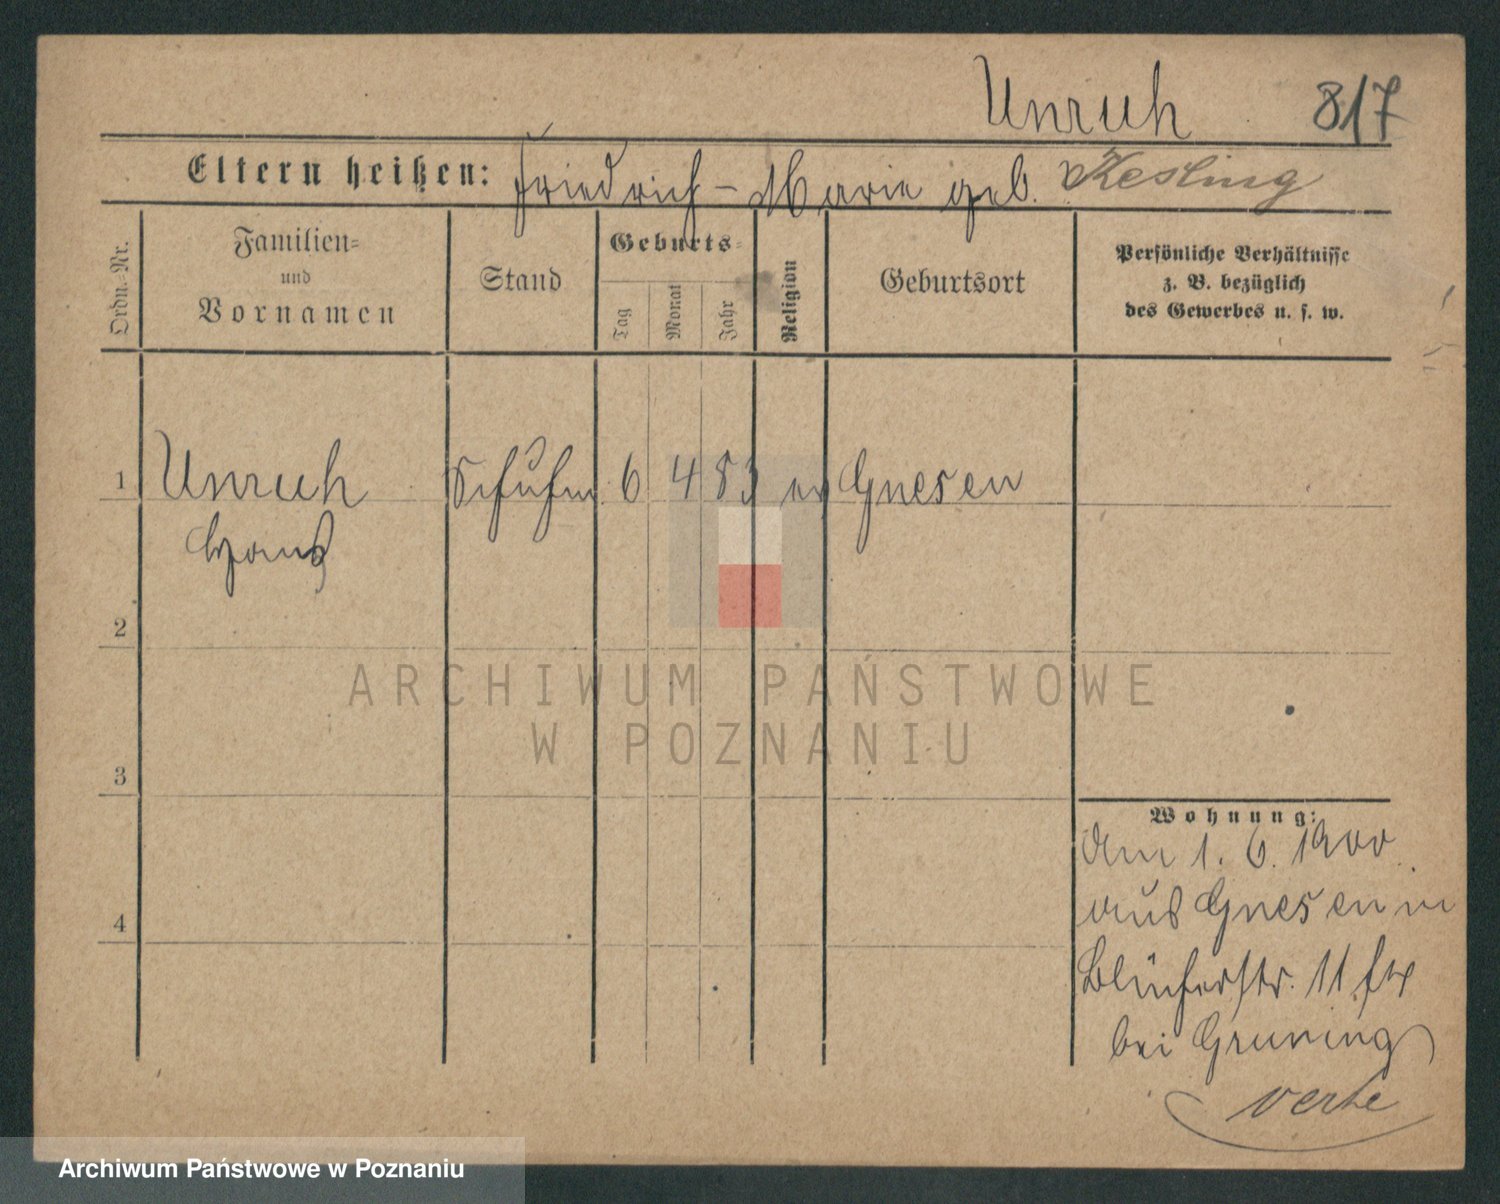 Unruh 817
Eltern heißen: Friedrich - Marie geb. Kesling
Ordn.-Nr.
Familien-
und
Vornamen
Stand
Geburts-
Tag
Monat
Jahr
Religion
Geburtsort
Persönliche Verhältnisse
z. B. bezüglich
des Gewerbes u. s. w.
1 Unruh Schuhm 6 4 83 ev Gnesen
Hans
2
3
4
Wohnung:
Am 1. 6. 1900
aus Gnesen in
Blücherstr. 11
bei Gruning
verte
ARCHIWUM PAŃSTWOWE
W POZNANIU
Archiwum Państwowe w Poznaniu